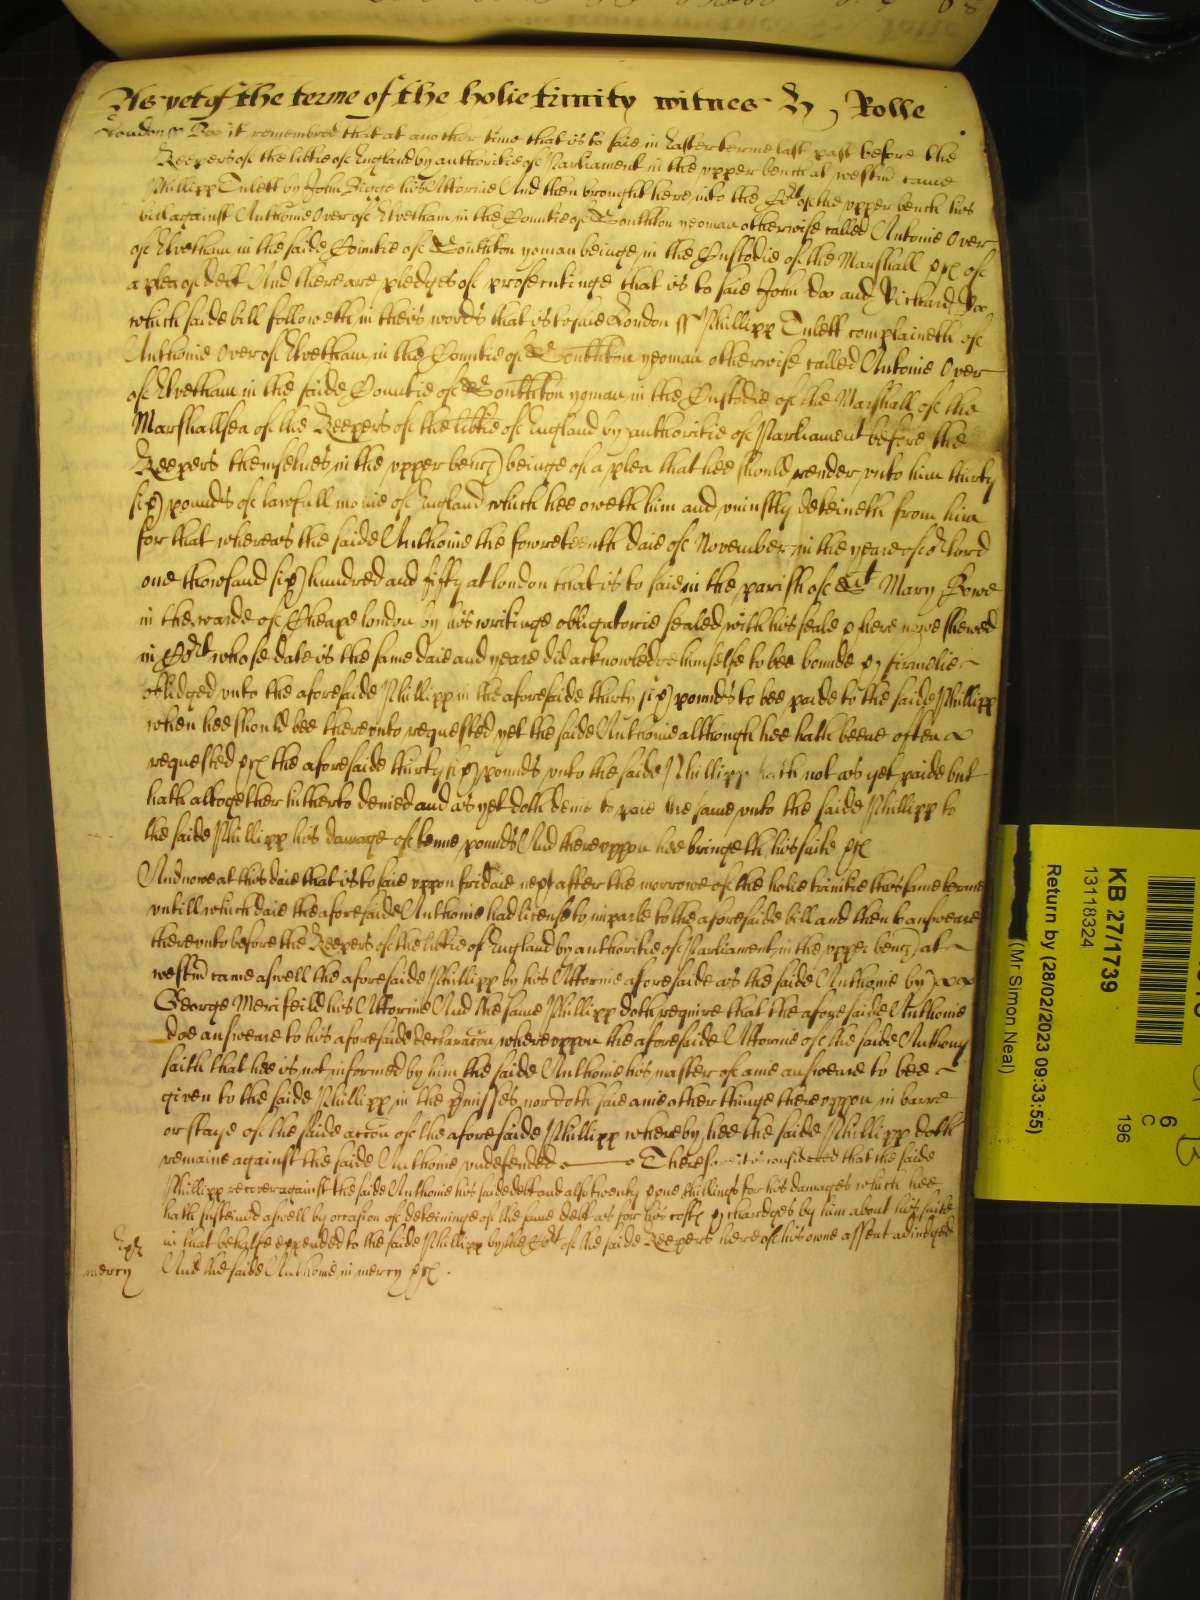 As yet of the terme of the holie trinity witnes H , Rolle
London ss Bee it remembred that at another time that is to saie in Easter terme last past before the
Keepers of the libtie of England by authoritie of Parliament in the upper bench at westm came
Phillipp Tulett by John his Attornie And then brought here into the Cort of the upper bench his
bill against Anthonie Over of Elvetham in the Countie of Southton yeoman otherwise called Antonie Over
of Elvetham in the saide Countie of Southton yoman beinge in the Custodie of the Marshall &c of
a plea of dett And there are pledges of prosecutinge that is to saie John Doo and Richard Roo
which saide bill followeth in theis words that is to saie London ss Phillipp Tulett complaineth of
Anthonie Over of Elvetham in the Countie of Southton yeoman otherwise called Antonie Over
of Elvetham in the saide Countie of Southton yoman in the Custodie of the Marshall of the
Marshallsea of the Keepers of the libtie of England by authoritie of Parliament before the
Keepers themselves in the upper bench beinge of a plea that hee should render unto him thirty
six pounds of lawfull monie of England which hee oweth him and uniustly deteineth from him
for that whereas the saide Anthonie the fowreteenth daie of November in the yeare of or lord
one thowsand six hundred and fifty at london that is to saie in the parish of St Mary Bowe
in the warde of Cheape london by his writinge obligatorie sealed with his seale & here nowe shewed
in Cort whose date is the same daie and yeare did acknowledge himselfe to bee bounde & firmelie
obliged unto the aforesaide Phillipp in the aforesaide thirty six pounds to bee paide to the saide Phillipp
when hee should bee thereunto requested yet the saide Anthonie although hee hath beene often
requested &c the aforesaide thirty six pounds unto the saide Phillipp hath not as yet paide but
hath altogether hitherto denied and as yet doth denie to paie the same unto the saide Phillipp to
the saide Phillipp his damage of tenne pounds And thereuppon hee bringeth his suite &c
And nowe at this daie that is to saie uppon fridaie next after the morrowe of the holie trinitie this same terme
untill which daie the aforesaide Anthonie had license to imparle to the aforesaide bill and then to answeare
thereunto before the Keepers of the libtie of England by authoritie of Parliament in the upper bench at
westm came aswell the aforesaide Phillipp by his Attornie aforesaide as the saide Anthonie by
George Merifeild his Attornie And the same Phillipp doth require that the aforesaide Anthonie
doe answeare to his aforesaide declaracon whereuppon the aforesaide Attornie of the saide Anthony
saith that hee is not informed by him the saide Anthonie his master of anie answeare to bee
given to the saide Phillipp in the pmisses nor doth saie anie other thinge thereuppon in barre
or staye of the saide accon of the aforesaide Phillipp whereby hee the saide Phillipp doth
remaine against the saide Anthonie undefended Therefore it is considered that the saide
Phillipp recover against the saide Anthonie his saide dett and also twenty & one shillings for his damages which hee
hath susteined aswell by occasion of deteininge of the same dett as for his costs & chardges by him about his suite
in that behalfe expended to the saide Phillipp by the Cort of the saide Keepers here of his owne assent adiudged
mercy And the saide Anthonie in mercy &c.
KB 27/1739
13118324
Return by (28/02/2023 09:33:55)
(Mr Simon Neal)
6
C
196